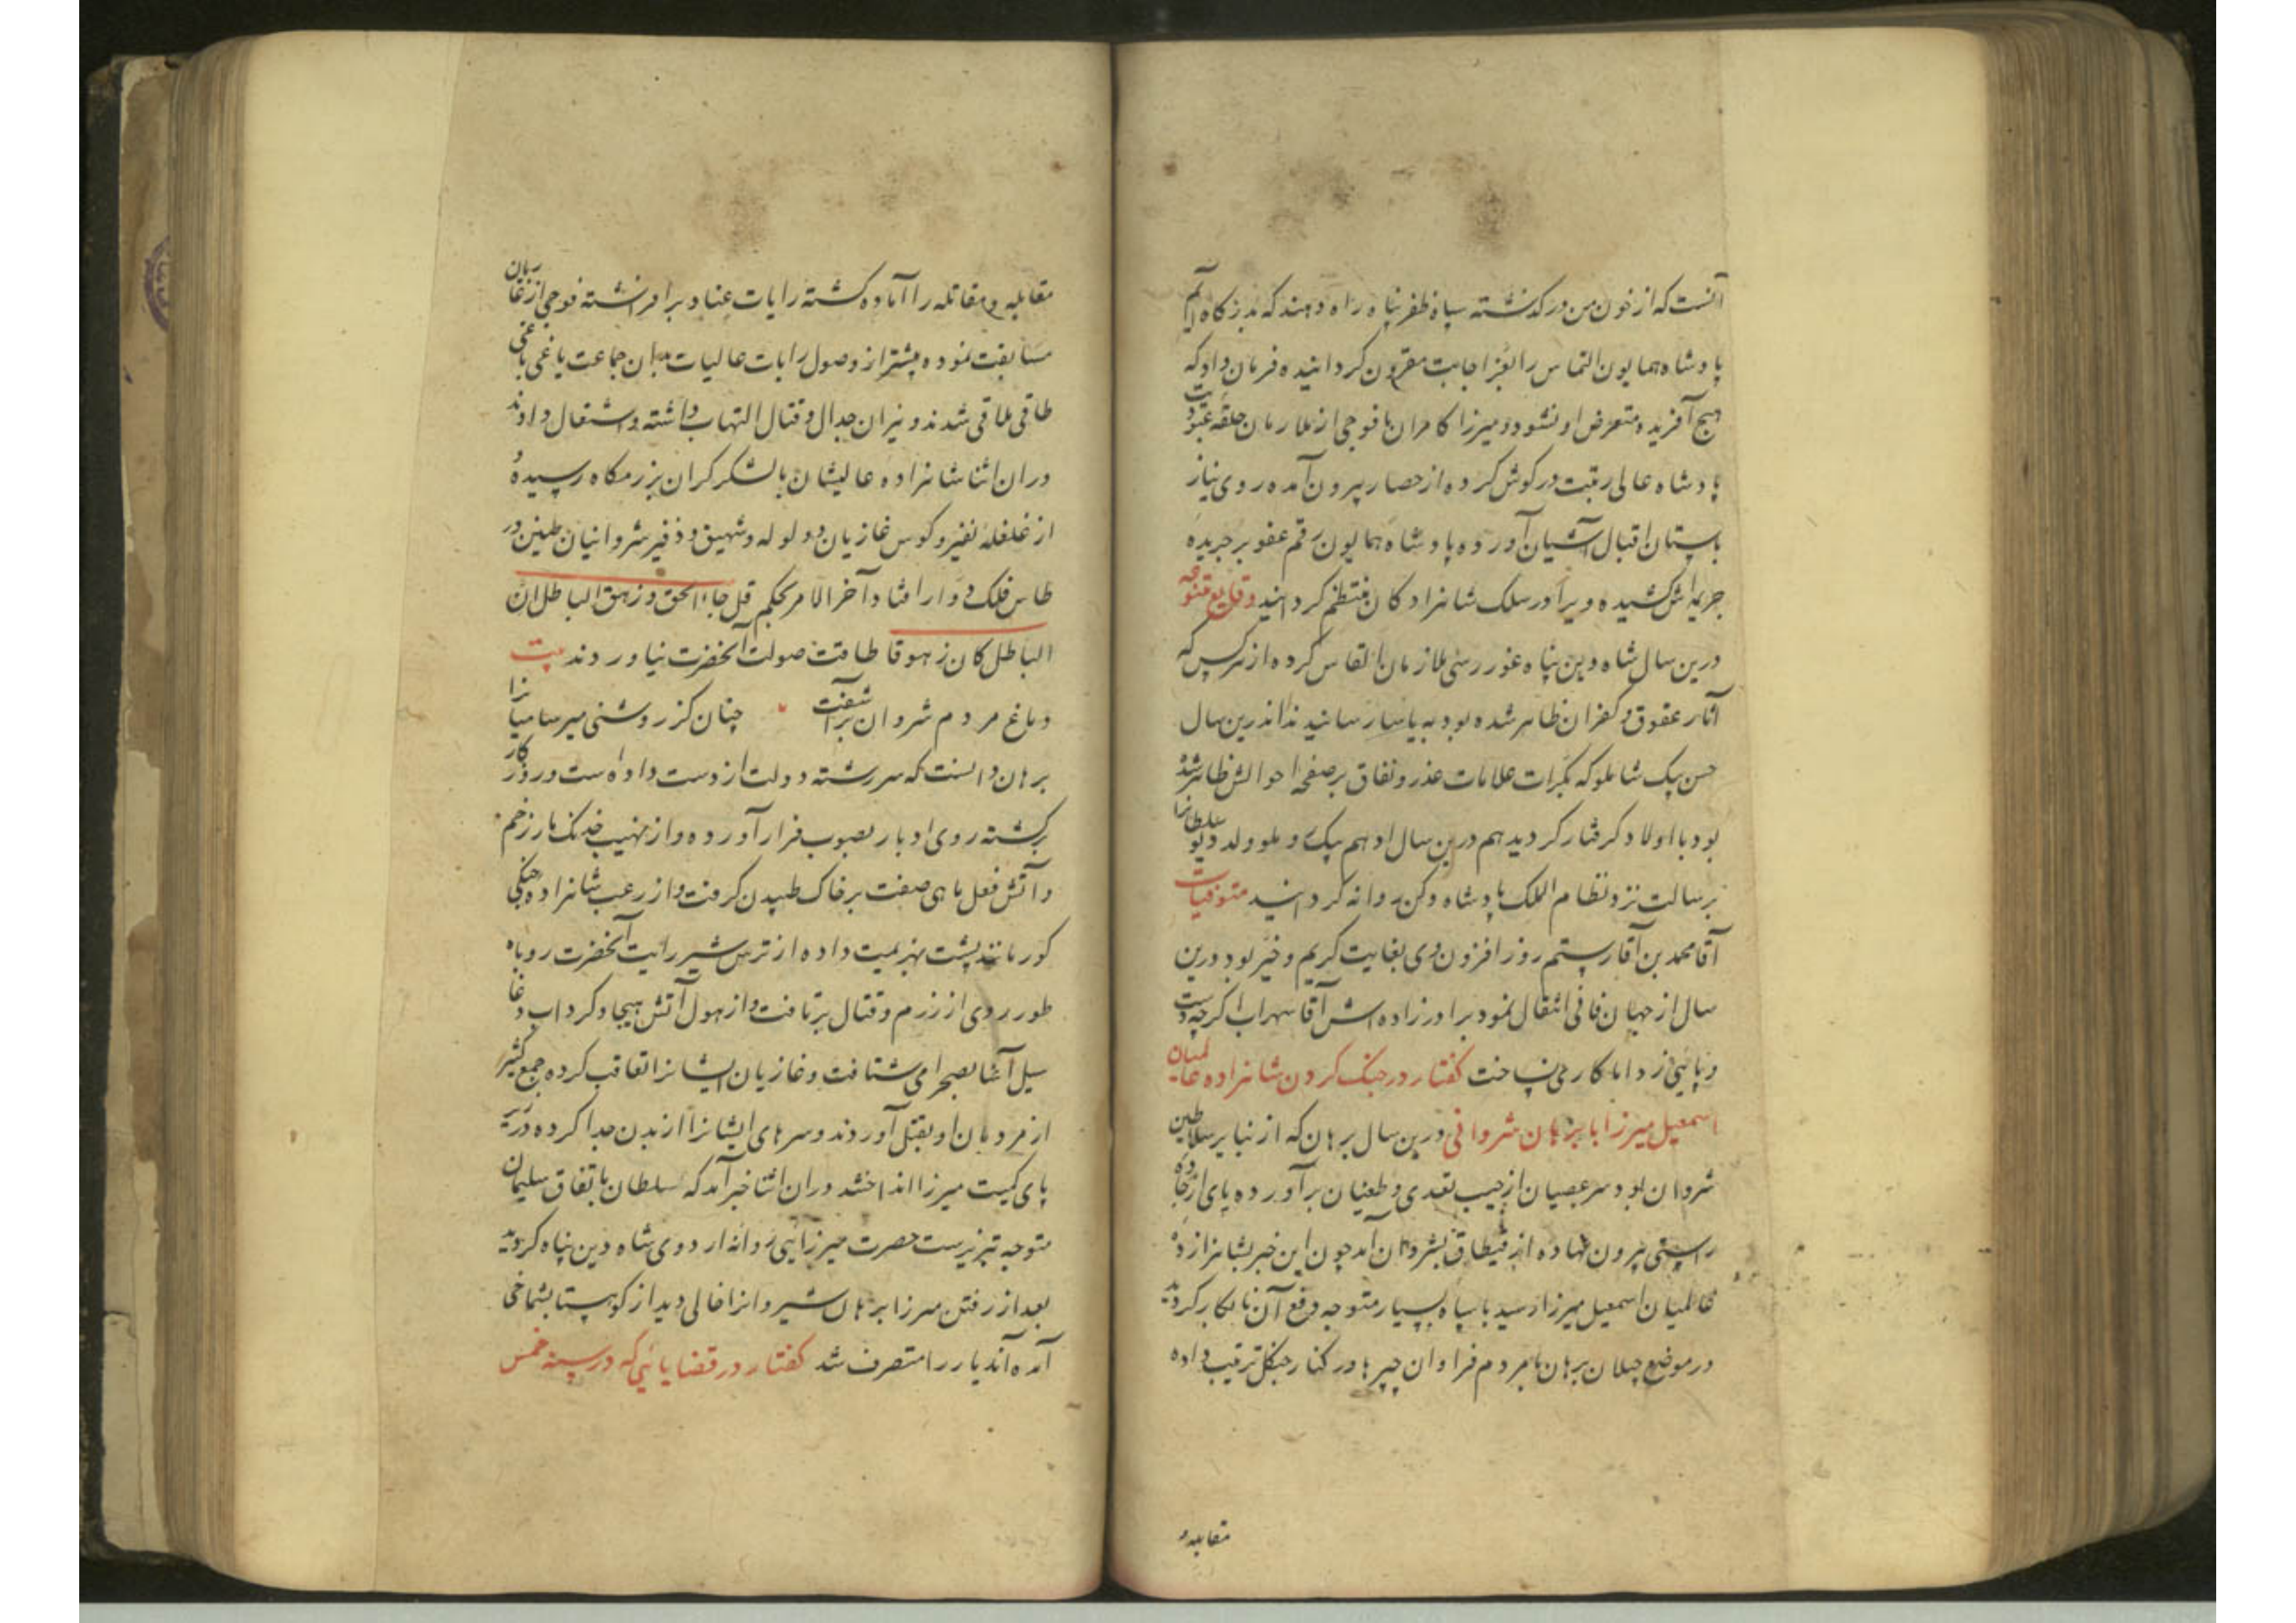 آنست که از خون من درگذشته سپاه ظفر پناه راه دهند که بدرگاه آیم
پادشاه همایون التماس را بعز اجابت مقرون گردانیده فرمان داد که
هیچ آفریده متعرض او نشود و میرزا کامران با فوجی از ملازمان حلقه عبودیت
پادشاه عالی رتبت در گوش کرده از حصار بیرون آمده روی نیاز
باستان اقبال آشیان آورده پادشاه همایون رقم عفو بر جریده
جریمه اش کشیده ویرا در سلک شاهزادگان منتظم گردانید وقایع متنوعه
درین سال شاه دین پناه غور رسی ملازمان القاس کرده از هرکس که
آثار عقوق و کفران ظاهر شده بود به یاسا رسانیدند اندرین سال
حسن بیک شاملو که بکرات علامات غدر و نفاق بر صفحه احوالش ظاهر شده
بود با اولاد گرفتار گردید هم درین سال ادهم بیک روملو ولد دیو سلطانرا
برسالت نزد نظام الملک پادشاه دکن روانه گردانید متوفیات
آقا محمد بن آقا رستم روز افزون وی بغایت کریم و خیر بود درین
سال از جهان فانی انتقال نمود برادرزاده اش آقا سهراب اگرچه دست
و پائی زد اما کاری نساخت گفتار در جنگ کردن شاهزاده عالمیان
اسمعیل میرزا با برهان شروانی درین سال برهان که از نبایر سلاطین
شروان بود سر عصیان از جیب تعدی و طغیان برآورده پای از جاده
راستی بیرون نهاده از قیطاق بشروان آمد چون این خبر بشاهزاده
عالمیان اسمعیل میرزا رسید با سپاه بسیار متوجه دفع آن نابکار گردید
در موضع چیلان برهان با مردم فراوان چپرها در کنار جنگل ترتیب داده
مقابله و
مقابله و مقاتله را آماده گشته رایات عناد برافراشته فوجی از غازیان
مسابقت نموده پیشتر از وصول رایات عالیات بان جماعت یاغی باغی
طاقی ملاقی شدند و نیران جدال و قتال التهاب داشته و اشتعال دادند
در ان اثنا شاهزاده عالیشان با لشکر گران برزمگاه رسیده و
از غلغله نفیر و کوس غازیان و ولوله و شهیق و زفیر شروانیان طنین در
طاس فلک دوار افتاد آخر الامر بحکم قل جاء الحق و زهق الباطل ان
الباطل کان زهوقا طاقت صولت آنحضرت نیاوردند بیت
دماغ مردم شروان برآشفت چنان کز روشنی میرسامیانرا
برهان دانست که سررشته دولت از دست داده است و روزگار
برگشته روی ادبار بصوب فرار آورده و از نهیب خدنگ مار زخم
و آتش فعل ماهی صفت بر خاک طپیدن گرفت و از رعب شاهزاده جنگی
گور مانند پشت بهزیمت داده از ترس شیر رایت آنحضرت روباه
طور روی از رزم و قتال برتافت و از هول آتش هیجا و گرداب وغا
سیل آسا بصحرا می شتافت و غازیان ایشانرا تعاقب کرده جمع کثیر
از مردمان او بقتل آوردند و سرهای ایشانرا از بدن جدا کرده در زیر
پای کمیت میرزا انداختند در ان اثنا خبر آمد که سلطان باتفاق سلیمان
متوجه تبریزست حضرت میرزایی روانه اردوی شاه دین پناه گردید
بعد از رفتن میرزا برهان شیروانرا خالی دید از کوهستان بشماخی
آمده آندیار را متصرف شد گفتار در قضایائی که در سنه خمس